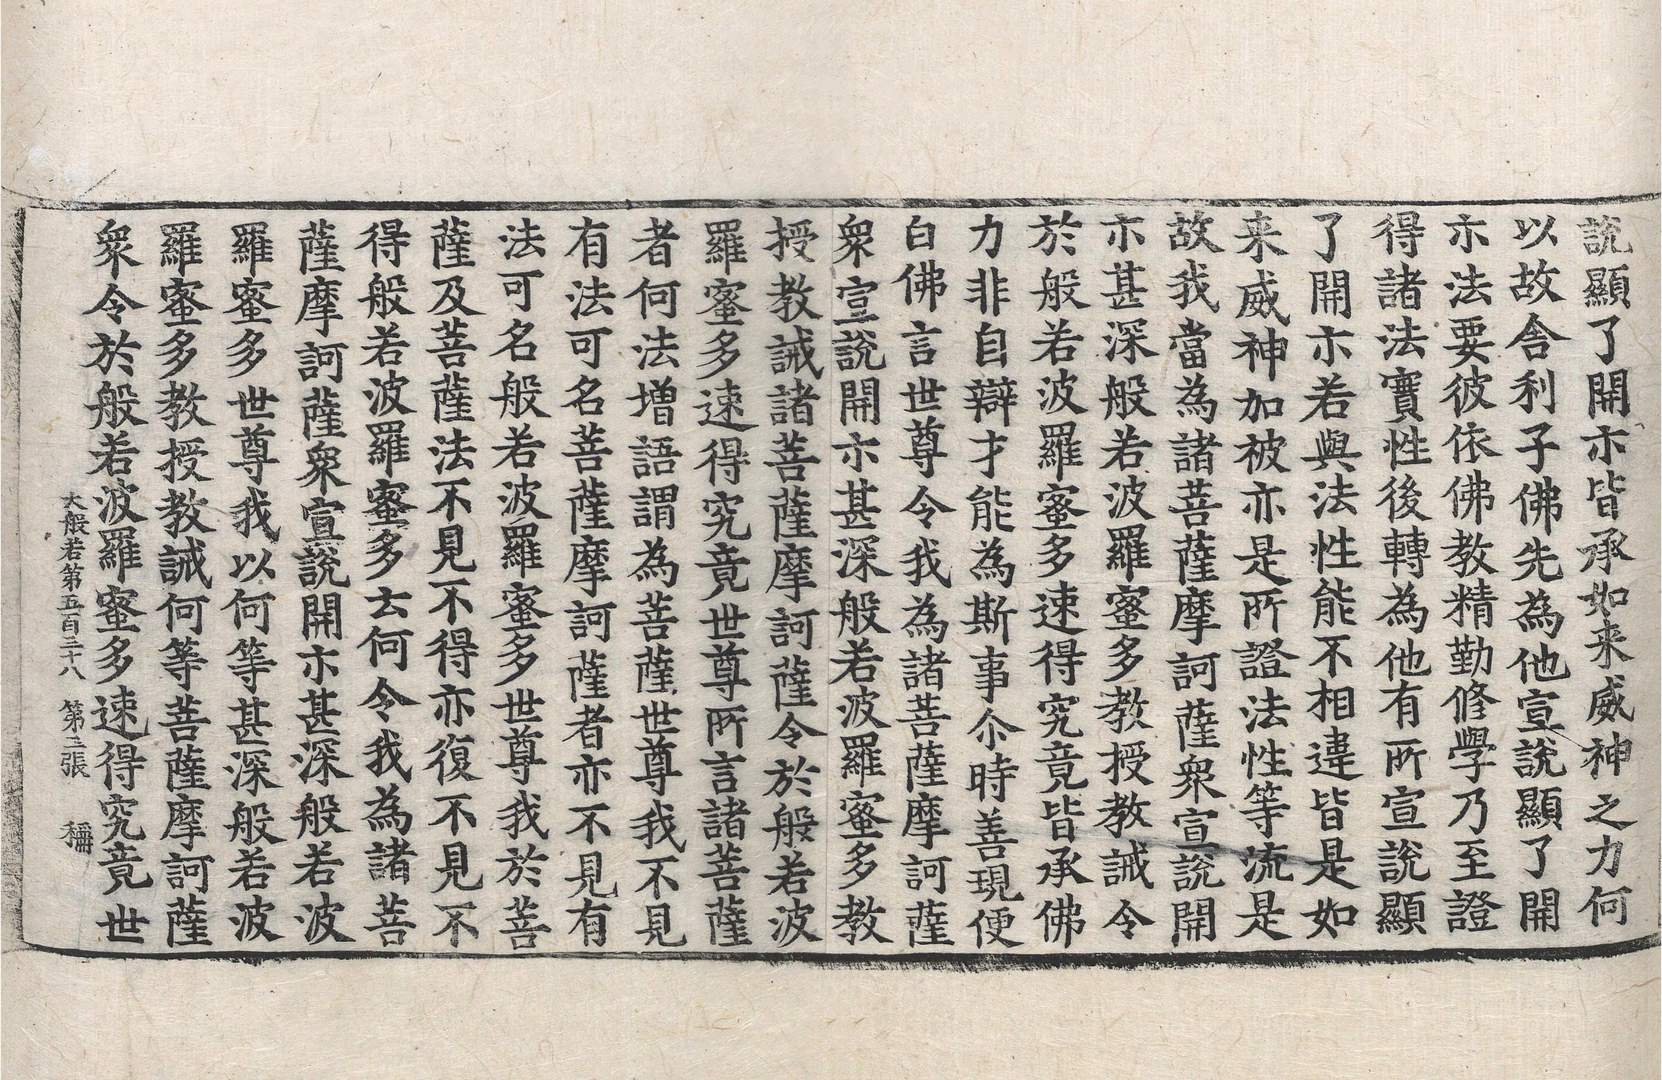 說顯了開示皆承如来威神之力何
以故舍利子佛先為他宣說顯了開
示法要彼依佛教精勤修學乃至證
得諸法實性後轉為他有所宣說顯
了開示若與法性能不相違皆是如
来威神加被亦是所證法性等流是
故我當為諸菩薩摩訶薩衆宣說開
示甚深般若波羅蜜多教授教誡令
於般若波羅蜜多速得究竟皆承佛
力非自辯才能為斯事尒時善現便
白佛言世尊令我為諸菩薩摩訶薩
衆宣說開示甚深般若波羅蜜多教
授教誡諸菩薩摩訶薩令於般若波
羅蜜多速得究竟世尊所言諸菩薩
者何法增語謂為菩薩世尊我不見
有法可名菩薩摩訶薩者亦不見有
法可名般若波羅蜜多世尊我於菩
薩及菩薩法不見不得亦復不見不
得般若波羅蜜多云何令我為諸菩
薩摩訶薩衆宣說開示甚深般若波
羅蜜多世尊我以何等甚深般若波
羅蜜多教授教誡何等菩薩摩訶薩
衆令於般若波羅蜜多速得究竟世
大般若第五百三十八 第三張 稱